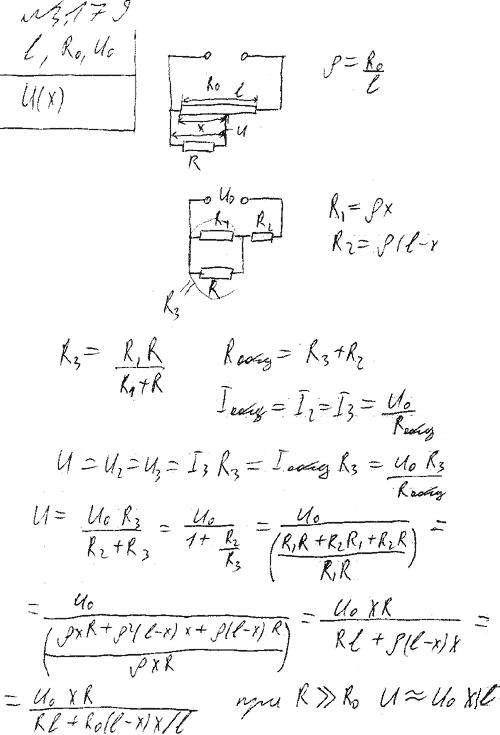 №3.179
l, R₀, U₀
U(x)
R₀ l
x U
R
ρ = R₀/l
U₀
R₁ R₂
R
R₃
R₁ = ρx
R₂ = ρ(l-x
R₃ = R₁R/(R₁+R) Rобщ = R₃+R₂
Iобщ = I₂ = I₃ = U₀/Rобщ
U = U₂ = U₃ = I₃R₃ = Iобщ R₃ = U₀R₃/Rобщ
U = U₀R₃/(R₂+R₃) = U₀/(1+R₂/R₃) = U₀/((R₁R+R₂R₁+R₂R)/R₁R) =
= U₀/((ρxR+ρ²(l-x)x+ρ(l-x)R)/ρxR) = U₀xR/(Rl+ρ(l-x)x) =
= U₀xR/(Rl+R₀(l-x)x/l) при R ≫ R₀ U ≈ U₀x/l